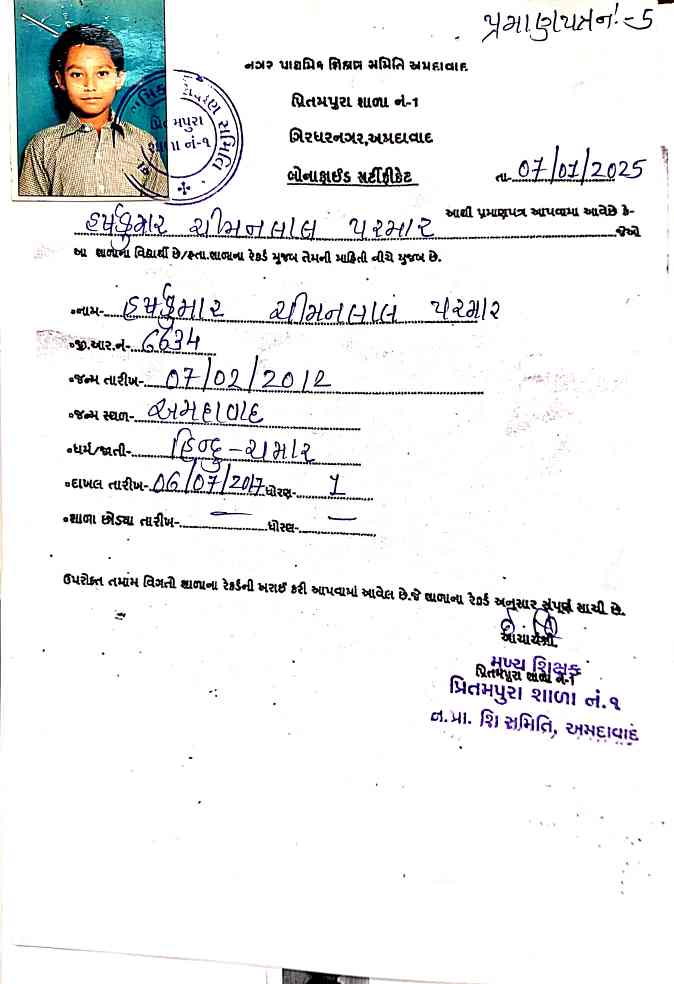 પ્રમાણપત્ર નં.- 5
નગર પ્રાથમિક શિક્ષણ સમિતિ અમદાવાદ.
પ્રિતમપુરા શાળા નં-1
ગિરધરનગર,અમદાવાદ
બોનાફાઈડ સર્ટીફીકેટ
તા- 07/01/2025
આથી પ્રમાણપત્ર આપવામા આવેછે કે-
હર્ષકુમાર ચીમનલાલ પરમાર જેઓ
આ શાળાના વિદ્યાર્થી છે/હતા.શાળાના રેકર્ડ મુજબ તેમની માહિતી નીચે મુજબ છે.
•નામ- હર્ષકુમાર ચીમનલાલ પરમાર
•જી.આર.નં- 6634
•જન્મ તારીખ- 07/02/2012
•જન્મ સ્થળ- અમદાવાદ
•ધર્મ/જાતી- હિન્દુ - ચમાર
•દાખલ તારીખ- 06/07/2017 ધોરણ- 1
•શાળા છોડ્યા તારીખ- — ધોરણ- —
ઉપરોક્ત તમામ વિગતો શાળાના રેકર્ડની ખરાઈ કરી આપવામાં આવેલ છે.જે શાળાના રેકર્ડ અનુસાર સંપૂર્ણ સાચી છે.
આચાર્યશ્રી.
પ્રિતમપુરા શાળા નં-1
મુખ્ય શિક્ષક
પ્રિતમપુરા શાળા નં.૧
ન.પ્રા. શિ સમિતિ, અમદાવાદ